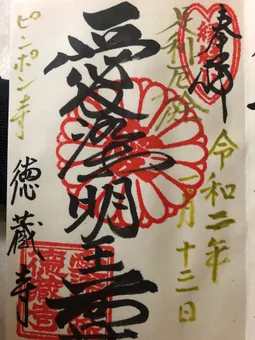 奉拝
令和二年
一月十三日
愛染明王尊
ピンポン寺
徳蔵寺